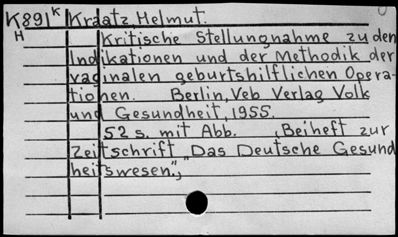 K891k Kraatz, Helmut.
H Kritische Stellungnahme zu den
Indikationen und der Methodik der
vaginalen geburtshilflichen Opera-
tionen. Berlin, Veb Verlag Volk
und Gesundheit, 1955.
52 s. mit Abb. „Beiheft zur
Zeitschrift „Das Deutsche Gesund
heitswesen.",